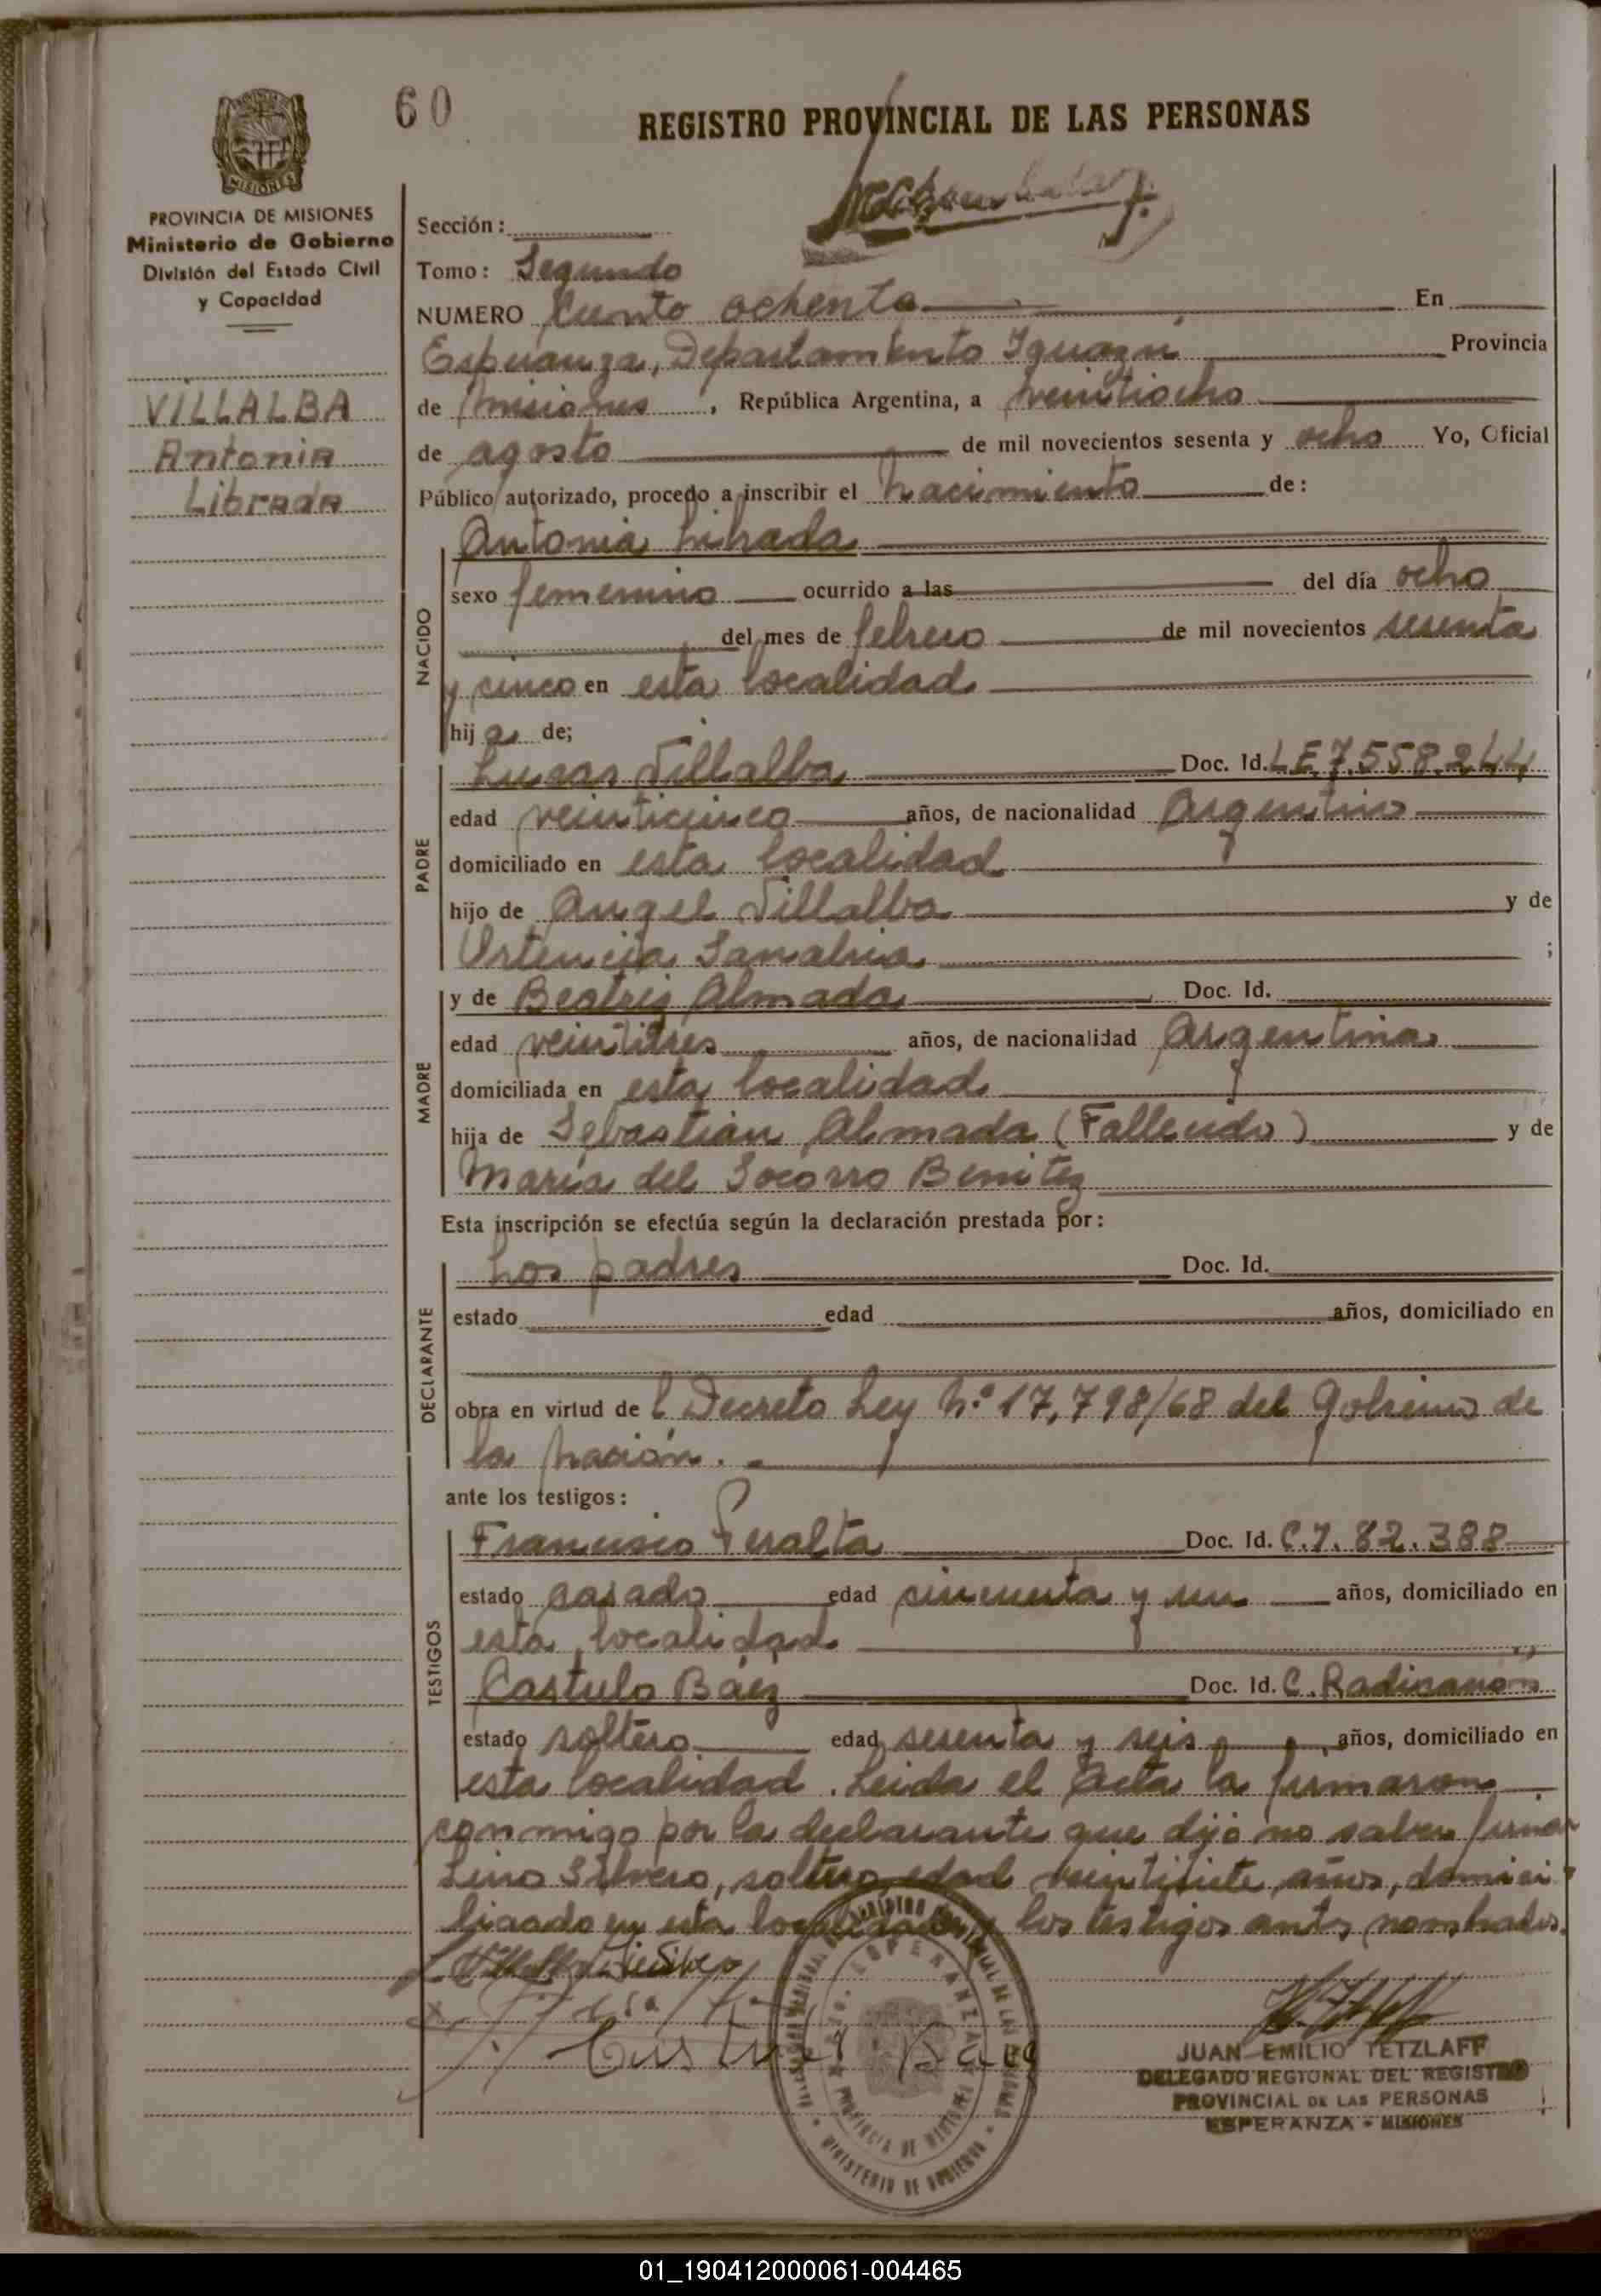 60
REGISTRO PROVINCIAL DE LAS PERSONAS
MISIONES
PROVINCIA DE MISIONES
Ministerio de Gobierno
División del Estado Civil
y Capacidad
VILLALBA
Antonia
Librada
Sección:
Tomo: Segundo
NUMERO Ciento ochenta En
Esperanza, Departamento Iguazú Provincia
de Misiones, República Argentina, a veintiocho
de agosto de mil novecientos sesenta y ocho Yo, Oficial
Público autorizado, procedo a inscribir el nacimiento de:
NACIDO
Antonia Librada
sexo femenino ocurrido a las del día ocho
del mes de febrero de mil novecientos sesenta
y cinco en esta localidad
hija de;
PADRE
Lucas Villalba Doc. Id. L.E. 7.558.244
edad veinticinco años, de nacionalidad Argentino
domiciliado en esta localidad
hijo de Angel Villalba y de
Ortencia Sanabria ;
MADRE
y de Beatriz Almada Doc. Id.
edad veintitres años, de nacionalidad Argentina
domiciliada en esta localidad
hija de Sebastián Almada (Fallecido) y de
María del Socorro Benitez
Esta inscripción se efectúa según la declaración prestada por:
DECLARANTE
Los padres Doc. Id.
estado edad años, domiciliado en
obra en virtud del Decreto Ley N.º 17,798/68 del Gobierno de
la Nación.
ante los testigos:
TESTIGOS
Francisco Peralta Doc. Id. C.I. 82.388
estado casado edad cincuenta y un años, domiciliado en
esta localidad
Castulo Báez Doc. Id. C. Radicación
estado soltero edad sesenta y seis años, domiciliado en
esta localidad. Leida el Acta la firmaron
conmigo por la declarante que dijo no saber firmar
Lino Silvero, soltero, edad veintisiete años, domici-
liado en esta localidad y los testigos antes nombrados.
L. Villalba Lino Silvero
Castulo Báez
ESPERANZA
PROVINCIA DE MISIONES
MINISTERIO DE GOBIERNO
JUAN EMILIO TETZLAFF
DELEGADO REGIONAL DEL REGISTRO
PROVINCIAL DE LAS PERSONAS
ESPERANZA - MISIONES
01_190412000061-004465